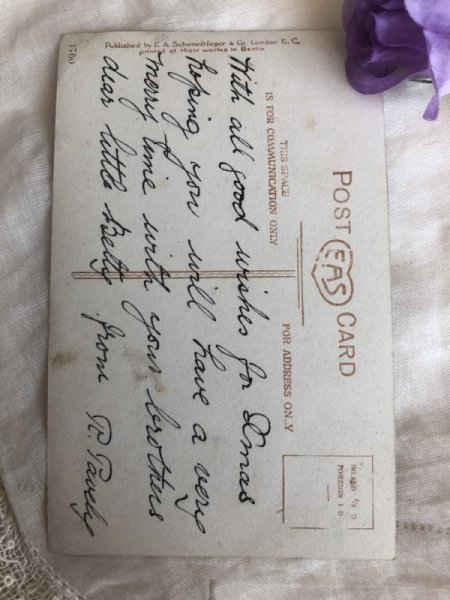 POST CARD
EAS
THIS SPACE
IS FOR COMMUNICATION ONLY
FOR ADDRESS ONLY
INLAND ½ D
FOREIGN 1 D
With all good wishes for Xmas
hoping you will have a very
merry time with your brothers
dear little Betty from R.
Published by E. A. Schwerdtfeger & Co. London E. C.
printed at their works in Berlin